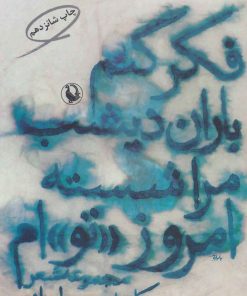 چاپ شانزدهم
فکر کنم
باران دیشب
مرا شسته
امروز «تو»ام
مجموعه شعر